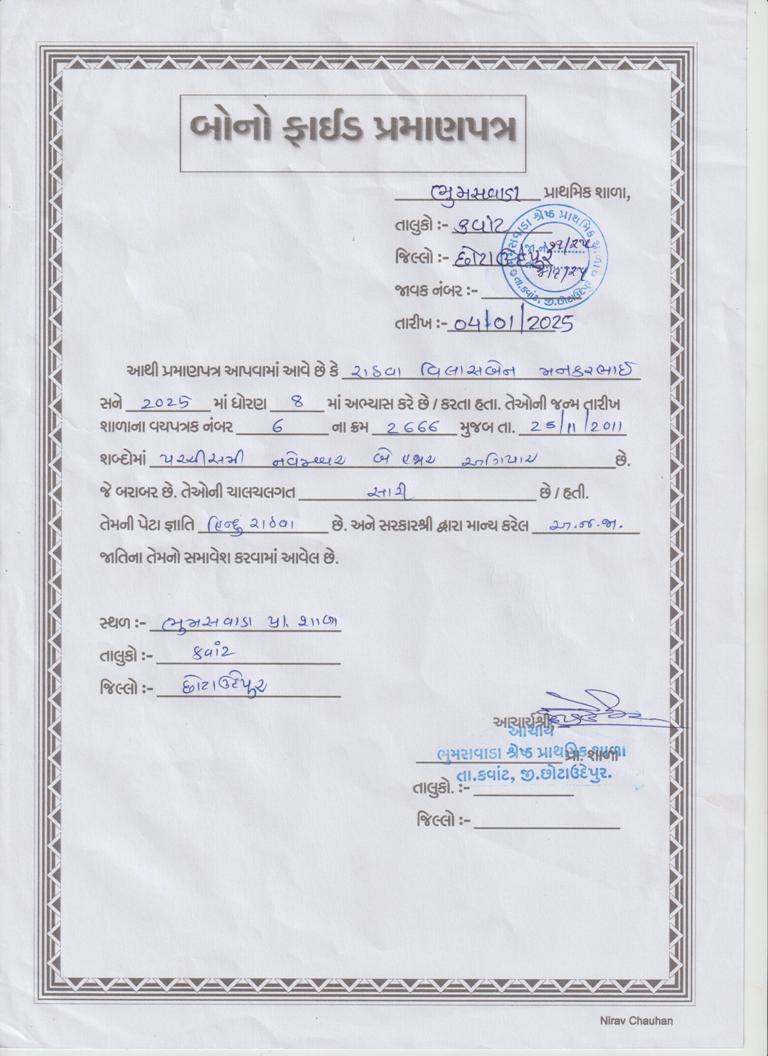 બોનો ફાઈડ પ્રમાણપત્ર
ભુમસવાડા પ્રાથમિક શાળા,
તાલુકો :- કવાંટ
જિલ્લો :- છોટાઉદેપુર
જાવક નંબર :-
તારીખ :- 04/01/2025
આથી પ્રમાણપત્ર આપવામાં આવે છે કે રાઠવા વિલાસબેન મનકરભાઈ
સને 2025 માં ધોરણ 8 માં અભ્યાસ કરે છે / કરતા હતા. તેઓની જન્મ તારીખ
શાળાના વયપત્રક નંબર 6 ના ક્રમ 2666 મુજબ તા. 25/11/2011
શબ્દોમાં પચ્ચીસમી નવેમ્બર બે હજાર અગિયાર છે.
જે બરાબર છે. તેઓની ચાલચલગત સારી છે / હતી.
તેમની પેટા જ્ઞાતિ હિન્દુ રાઠવા છે. અને સરકારશ્રી દ્વારા માન્ય કરેલ અ.જ.જા.
જાતિના તેમનો સમાવેશ કરવામાં આવેલ છે.
સ્થળ :- ભુમસવાડા પ્રા. શાળા
તાલુકો :- કવાંટ
જિલ્લો :- છોટાઉદેપુર
આચાર્યશ્રી
આચાર્ય
ભુમસવાડા શ્રેષ્ઠ પ્રાથમિક શાળા
પ્રા. શાળા
તા.કવાંટ, જી.છોટાઉદેપુર.
તાલુકો. :-
જિલ્લો :-
Nirav Chauhan